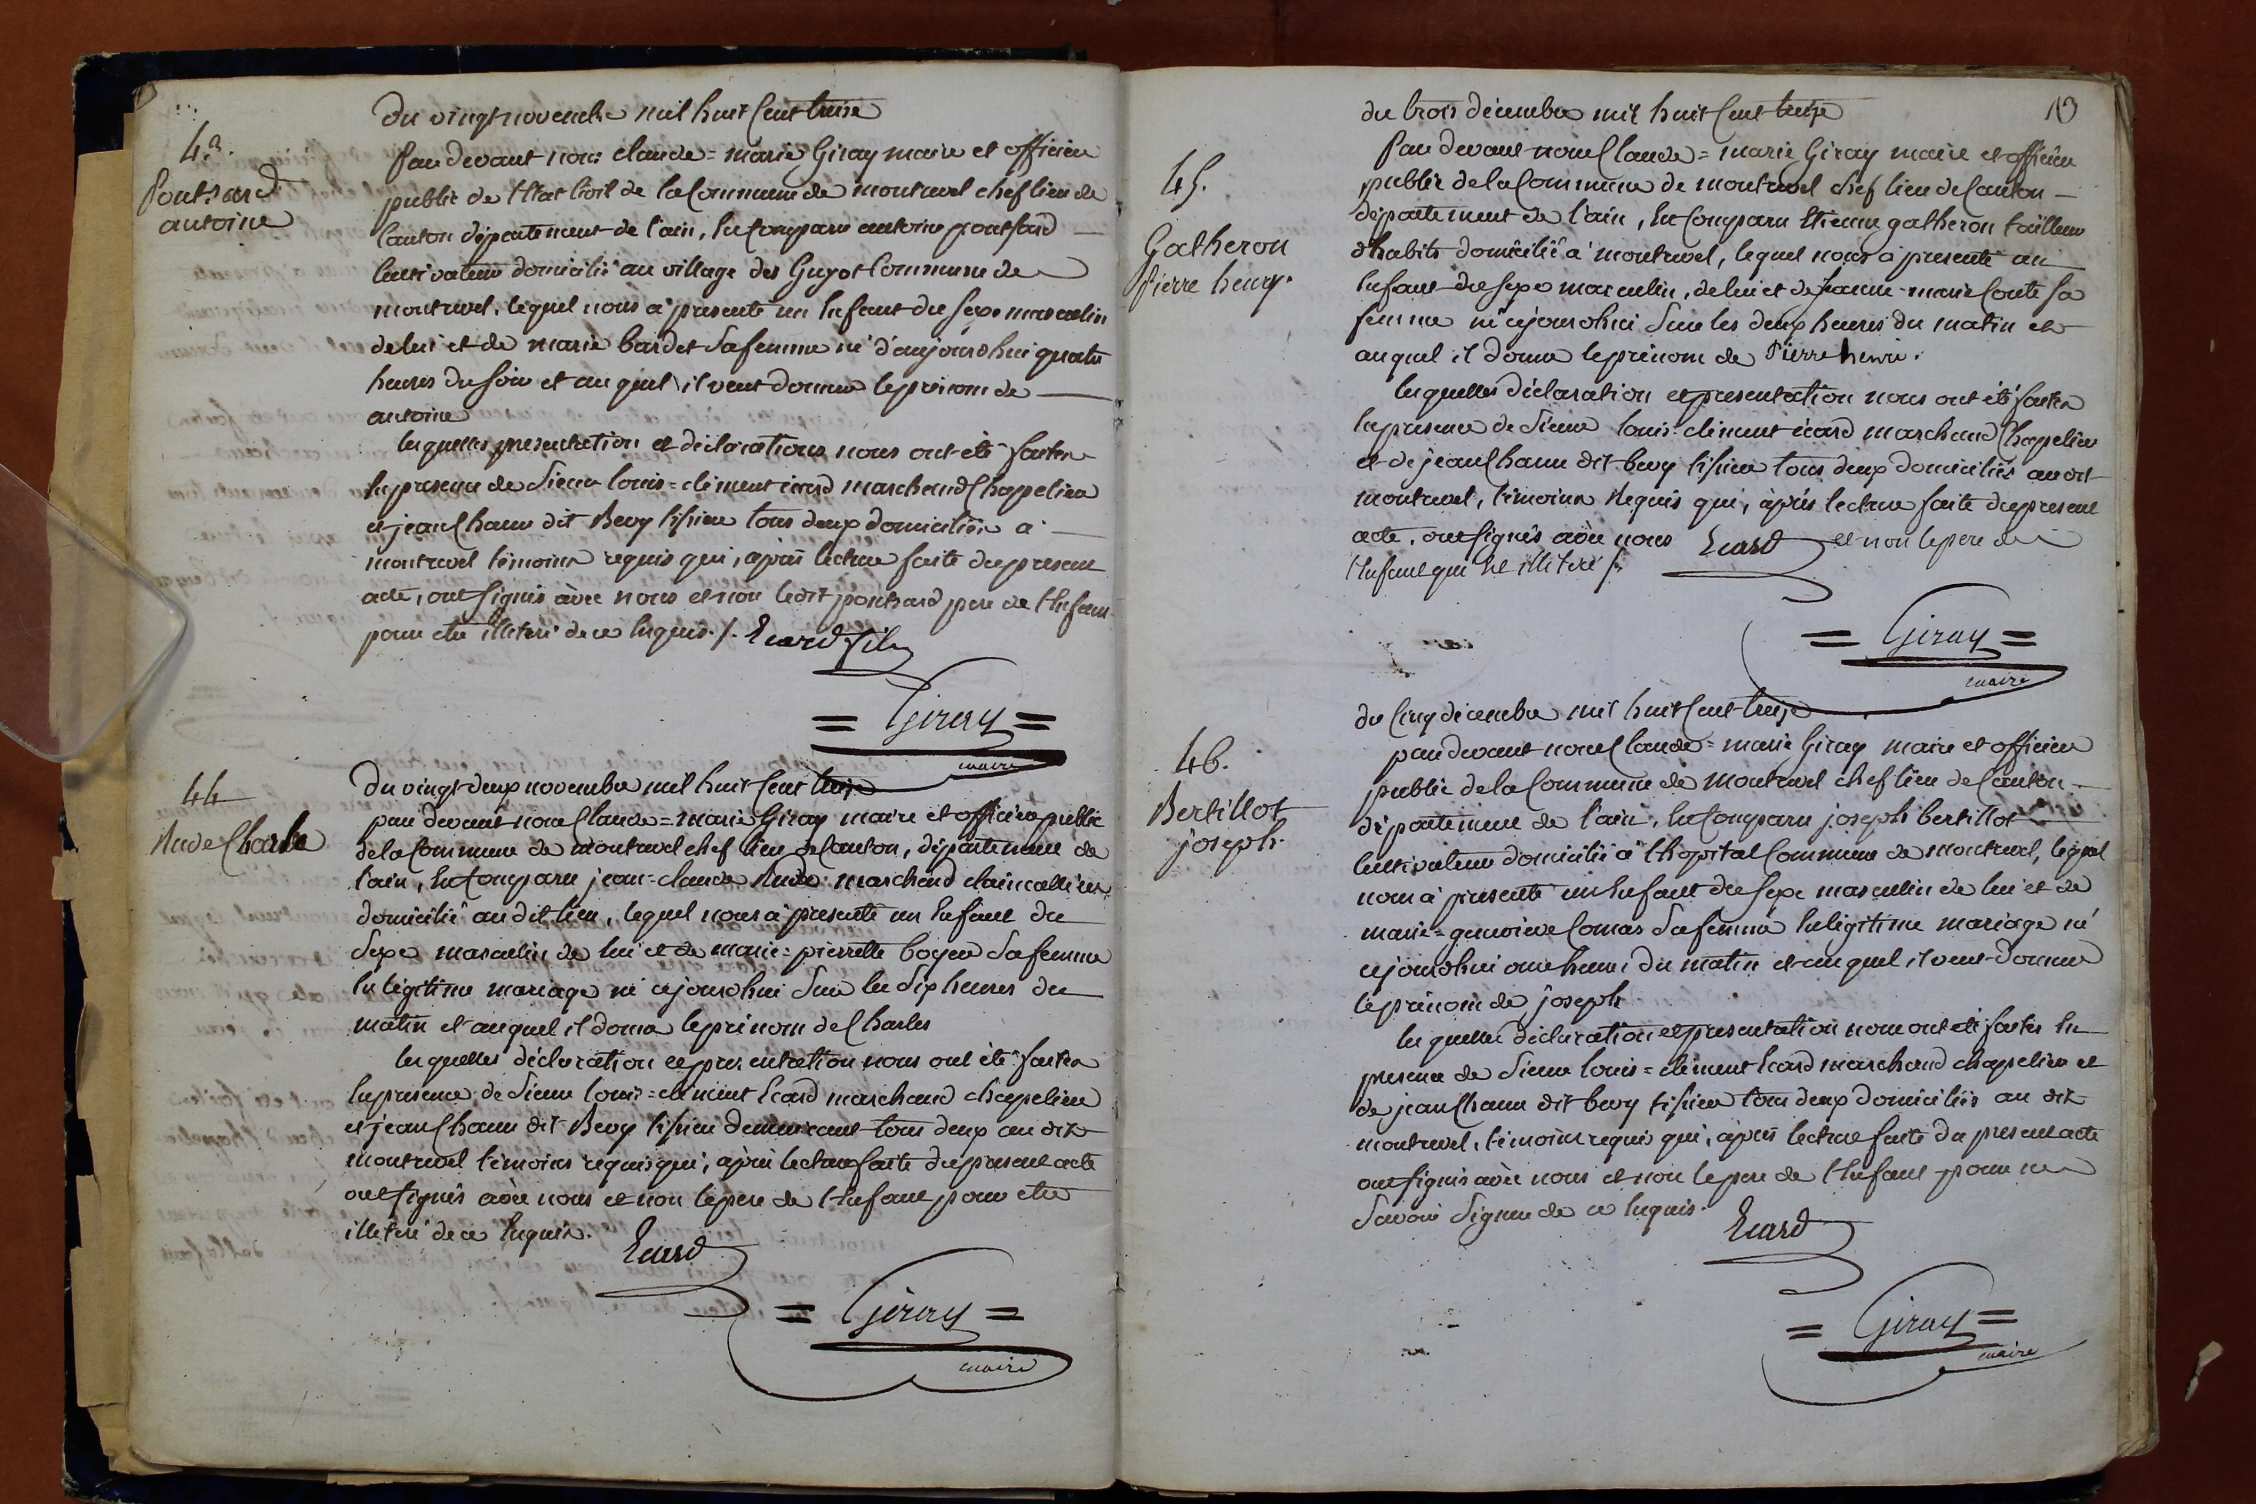 43.
Pontsard
antoine
Du vingt novembre mil huit Cent treize
Par devant nous claude = marie Giray maire et officier
public de l'Etat Civil de la Commune de montrevel chef lieu de
Canton département de l'ain, En Comparu antoine pontsard
Cultivateur domicilié au village des Guyot Commune de
montrevel, lequel nous à présenté un Enfant du sexe masculin
de lui et de marie bardet Sa femme né d'aujourdhui quatre
heures du soir et au quel il veut donner le prénom de
antoine
lesquelles présentation et déclarations nous ont été faites
En présence de Sieur louis = clément icard marchand Chapelier
et jean Chanu dit Bevy tissier tous deux domiciliés à
montrevel témoins requis qui, après lecture faite du présent
acte, ont signés avec nous et non ledit pontsard pere de l'Enfant
pour etre illiteré de ce Enquis ./. Ecard fils
= Giray =
maire
44
Aude Charle
Du vingt deux novembre mil huit Cent treize
par devant nous Claude = marie Giray maire et officier public
de la Commune de montrevel chef lieu de Canton, département de
l'ain, En Comparu jean = claude Aude marchand claincallier
domicilié au dit lieu, lequel nous à présenté un Enfant du
Sexe masculin de lui et de marie = pierrette boyer Sa femme
En légitime mariage né cejourdhui Sur les Six heures du
matin et auquel il donne le prénom de Charles
lesquelles déclaration et présentation nous ont été faites
En présence de Sieur louis = clément Ecard marchand chapelier
et jean Chanu dit Bevy tissier demeurant tous deux au dit
montrevel témoins requis qui, après lecture faite du présent acte
ont signés avec nous et non le pere de l'Enfant pour etre
illiteré de ce Enquis.
Ecard
= Giray =
maire
13
45.
Gatheron
Pierre henry.
du trois décembre mil huit Cent treize
Par devant nous Claude = marie Giray maire et officier
public de la Commune de montrevel chef lieu de Canton
département de l'ain, En Comparu Etienne gatheron tailleur
d'habits domicilié à montrevel, lequel nous à présenté un
Enfant du sexe masculin, de lui et de jeanne-marie Conte sa
femme né cejourdhui Sur les deux heures du matin et
auquel il donne le prénom de Pierre henri.
lesquelles déclaration et présentation nous ont été faites
En présence de Sieur louis = clément écard marchand Chapelier
et de jean Chanu dit bevy tissier tous deux domiciliés au dit
montrevel, témoins Requis qui, après lecture faite du présent
acte, ont signés avec nous Ecard et non le pere de
l'Enfant qui Est illiteré /.
= Giray =
maire
46.
Bertillot
joseph.
du Cinq décembre mil huit Cent treize
par devant nous Claude = marie Giray maire et officier
public de la Commune de montrevel chef lieu de Canton
département de l'ain, En Comparu joseph bertillot
Cultivateur domicilié à l'hopital Commune de montrevel, lequel
nous à présenté un Enfant du sexe masculin de lui et de
marie = genevieve Comas Sa femme En légitime mariage né
cejourdhui onze heures du matin et auquel il veut donner
le prénom de joseph
lesquelles déclaration et présentation nous ont été faites En
présence de Sieur louis = clément Ecard marchand chapelier et
de jean Chanu dit bevy tissier tous deux domiciliés au dit
montrevel, témoins requis qui, après lecture faite du présent acte
ont signés avec nous et non le pere de l'Enfant pour ne
Savoir Signer de ce Enquis.
Ecard
= Giray =
maire